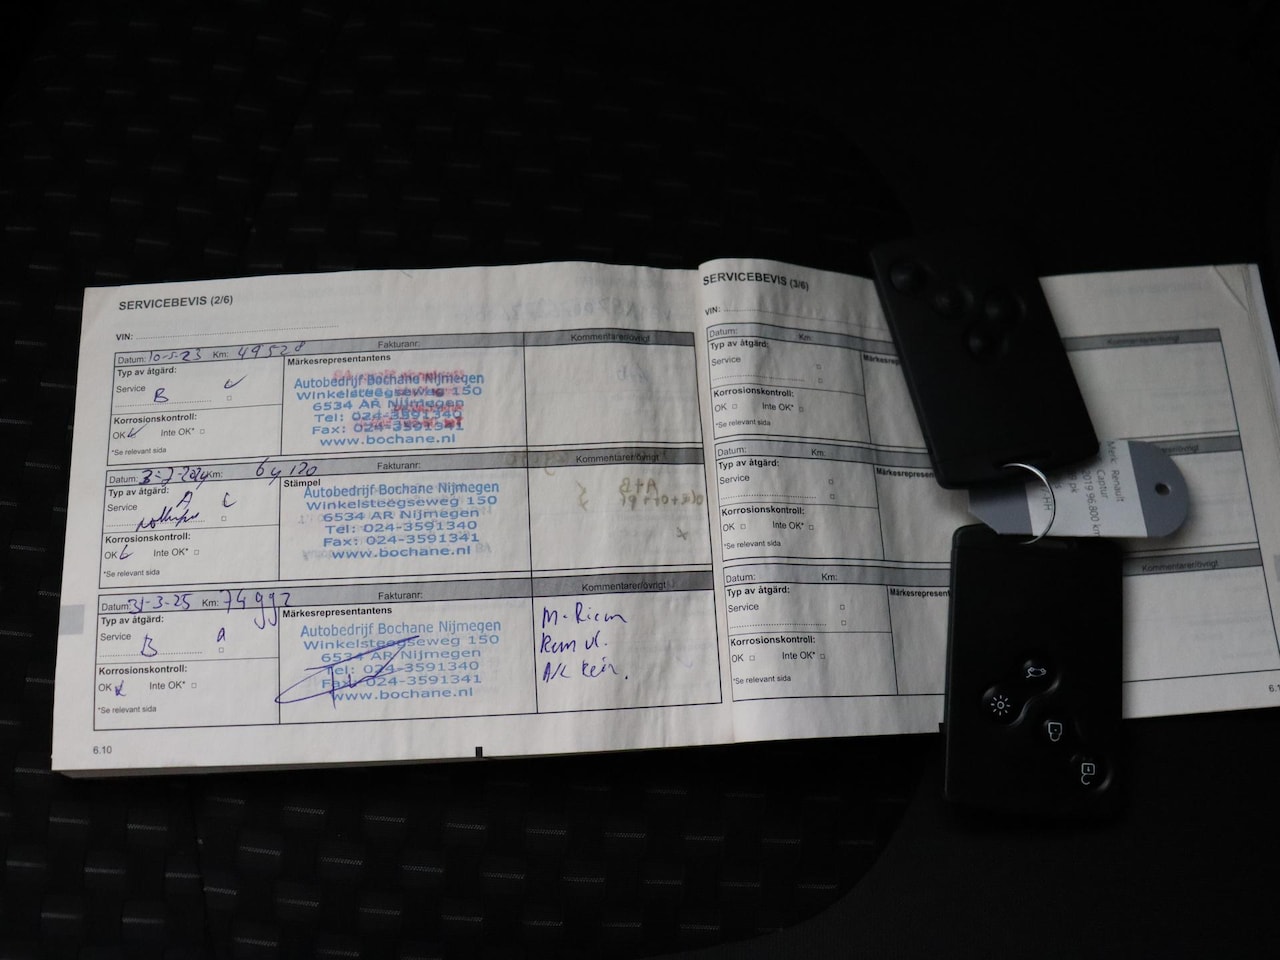 SERVICEBEVIS (2/6)
VIN:
Datum: 10-5-23 Km: 49528 Fakturanr: Kommentarer/övrigt
Typ av åtgärd: Märkesrepresentantens
Service
B
Autobedrijf Bochane Nijmegen
Winkelsteegseweg 150
6534 AR Nijmegen
Tel: 024-3591340
Fax: 024-3591341
www.bochane.nl
Korrosionskontroll:
OK Inte OK*
*Se relevant sida
Datum: Km: 64120 Fakturanr: Kommentarer/övrigt
Typ av åtgärd: Stämpel
Service A
Autobedrijf Bochane Nijmegen
Winkelsteegseweg 150
6534 AR Nijmegen
Tel: 024-3591340
Fax: 024-3591341
www.bochane.nl
Korrosionskontroll:
OK Inte OK*
*Se relevant sida
Datum: 31-3-25 Km: 74992 Fakturanr: Kommentarer/övrigt
Typ av åtgärd: Märkesrepresentantens
Service
B
Autobedrijf Bochane Nijmegen
Winkelsteegseweg 150
6534 AR Nijmegen
Tel: 024-3591340
Fax: 024-3591341
www.bochane.nl
M-Riem
Rem vl.
Korrosionskontroll:
OK Inte OK*
*Se relevant sida
6.10
SERVICEBEVIS (3/6)
VIN:
Datum: Km:
Typ av åtgärd:
Service
Korrosionskontroll:
OK Inte OK*
*Se relevant sida
Kommentarer/övrigt
Datum: Km:
Typ av åtgärd:
Service
Korrosionskontroll:
OK Inte OK*
*Se relevant sida
Datum: Km:
Typ av åtgärd:
Service
Korrosionskontroll:
OK Inte OK*
*Se relevant sida
Kommentarer/övrigt
Merk Renault
Captur
2019 96.800 km